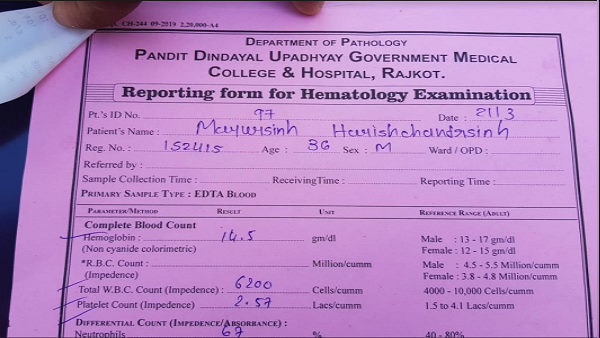 CH-244 09-2019 2,20,000-A4
DEPARTMENT OF PATHOLOGY
PANDIT DINDAYAL UPADHYAY GOVERNMENT MEDICAL
COLLEGE & HOSPITAL, RAJKOT.
Reporting form for Hematology Examination
Pt.'s ID No. 97 Date : 21/3
Patient's Name : Mayursinh Harishchandrasinh
Reg. No. : 152415 Age : 36 Sex : M Ward / OPD :
Referred by :
Sample Collection Time : Receiving Time : Reporting Time :
PRIMARY SAMPLE TYPE : EDTA BLOOD
PARAMETER/METHOD RESULT UNIT REFERENCE RANGE (ADULT)
Complete Blood Count
Hemoglobin : 14.5 gm/dl Male : 13 - 17 gm/dl
(Non cyanide colorimetric) Female : 12 - 15 gm/dl
*R.B.C. Count : Million/cumm Male : 4.5 - 5.5 Million/cumm
(Impedence) Female : 3.8 - 4.8 Million/cumm
Total W.B.C. Count (Impedence) : 6200 Cells/cumm 4000 - 10,000 Cells/cumm
Platelet Count (Impedence) 2.57 Lacs/cumm 1.5 to 4.1 Lacs/cumm
DIFFERENTIAL COUNT (IMPEDENCE/ABSORBANCE) :
Neutrophils 67 % 40 - 80%